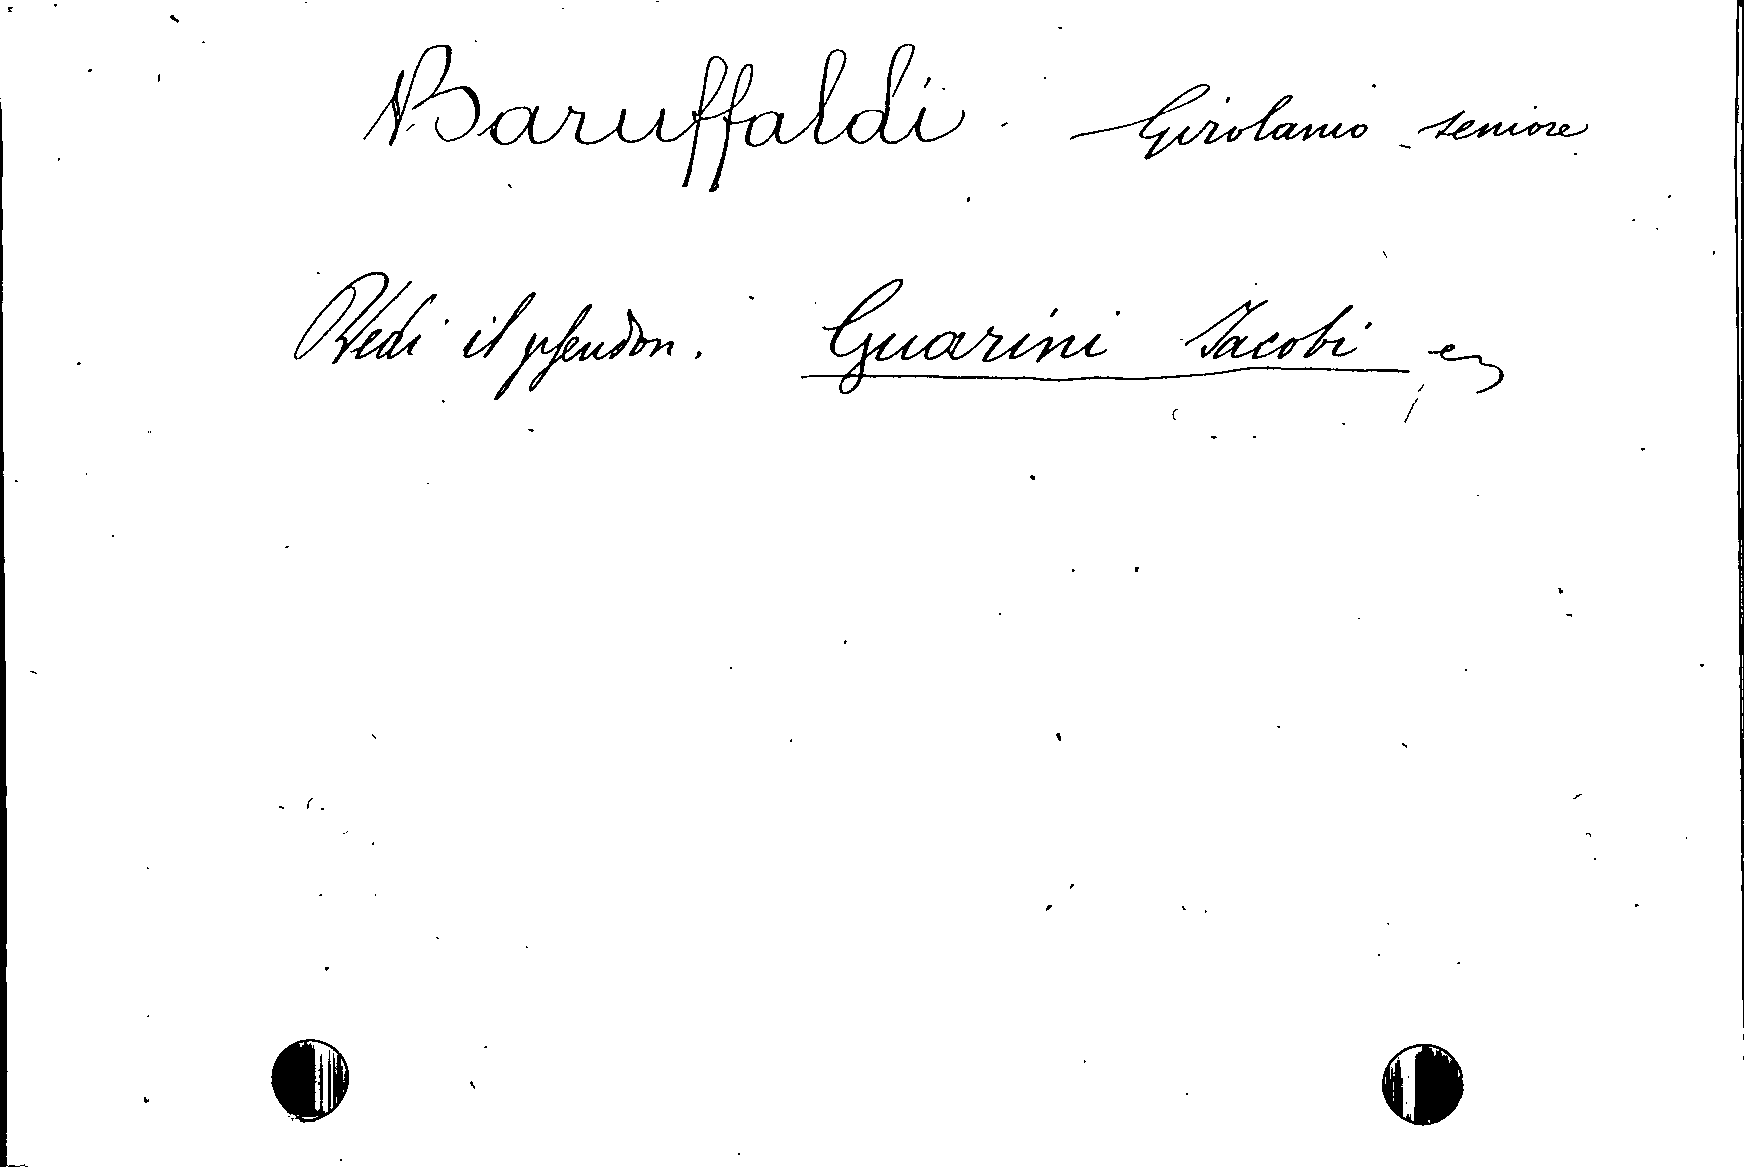 Baruffaldi Girolamo seniore
Vedi il pseudon. Guarini Jacobi